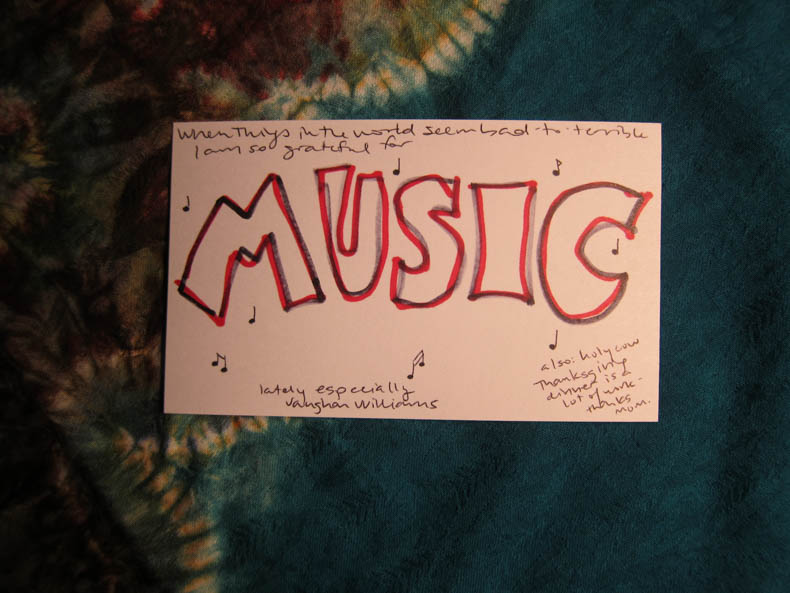 when things in the world seem bad-to-terrible
I am so grateful for
MUSIC
lately especially
Vaughan Williams
also: holy cow
Thanksgiving
dinner is a
lot of work-
thanks
MOM.